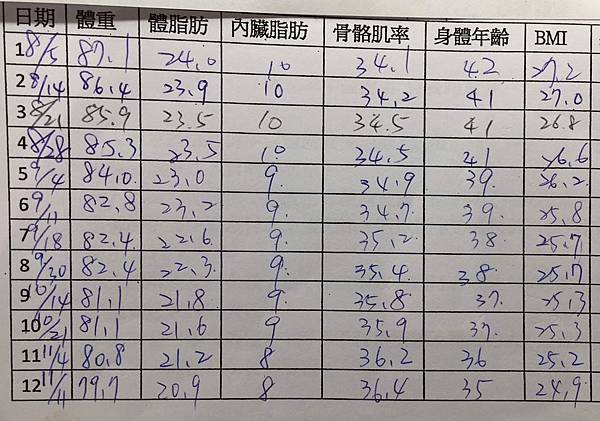 日期 體重 體脂肪 內臟脂肪 骨骼肌率 身體年齡 BMI
1 8/5 87.1 24.0 10 34.1 42 27.2
2 8/14 86.4 23.9 10 34.2 41 27.0
3 8/21 85.9 23.5 10 34.5 41 26.8
4 8/28 85.3 23.5 10 34.5 41 26.6
5 9/4 84.0 23.0 9. 34.9 39. 26.2
6 9/11 82.8 23.2 9. 34.7 39. 25.8
7 9/18 82.4. 22.6 9. 35.2 38 25.7
8 9/30 82.4 22.3 9. 35.4. 38 25.7
9 10/14 81.1 21.8 9 35.8 37. 25.3
10 10/21 81.1 21.6 9 35.9 37. 25.3
11 11/4 80.8 21.2 8 36.2 36 25.2
12 11/11 79.7 20.9 8 36.4 35 24.9